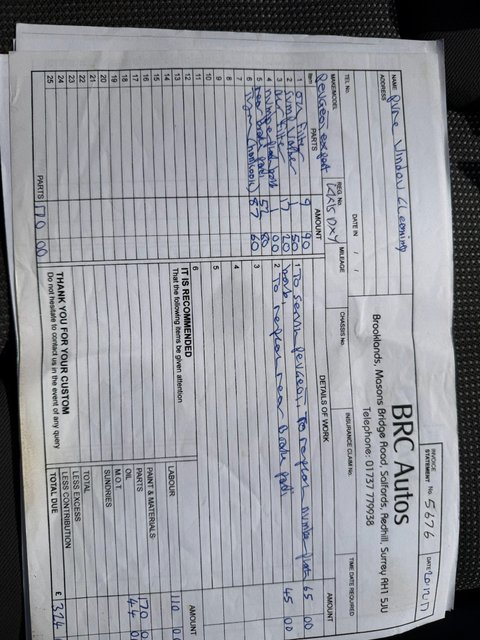 BRC Autos
Brooklands, Masons Bridge Road, Salfords, Redhill, Surrey RH1 5JU
Telephone: 01737 779938
INVOICE
STATEMENT No. 5676
DATE
NAME Pure Window Cleaning
ADDRESS
TEL No.
DATE IN / /
TIME DATE REQUIRED
MAKE/MODEL Peugeot expert
REG. No.
MILEAGE
CHASSIS No.
INSURANCE CLAIM No.
Item PARTS AMOUNT
1 oil filter 9 90
2 sump washer 1 50
3 air filter 17 20
4 number plate 1 00
5 rear brake pads 52 80
6 87 60
7
8
9
10
11
12
13
14
15
16
17
18
19
20
21
22
23
24
25
PARTS 170 00
DETAILS OF WORK AMOUNT
1 To service Peugeot, To replace number plate 65 00
2 To replace rear Brake pads 45 00
3
4
5
6
IT IS RECOMMENDED
That the following items be given attention
THANK YOU FOR YOUR CUSTOM
Do not hesitate to contact us in the event of any query
AMOUNT
LABOUR 110
PAINT & MATERIALS
PARTS 170
OIL 44
M.O.T.
SUNDRIES
TOTAL
LESS EXCESS
LESS CONTRIBUTION
TOTAL DUE £ 324